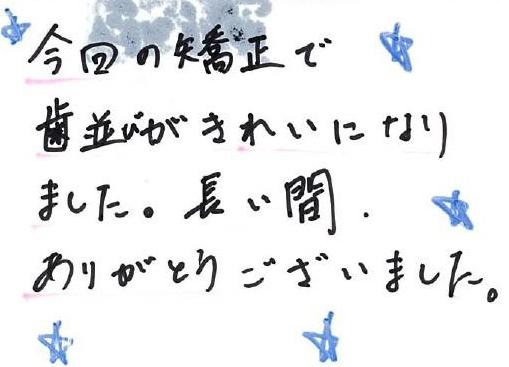 今回の矯正で
歯並びがきれいになり
ました。長い間.
ありがとうございました。